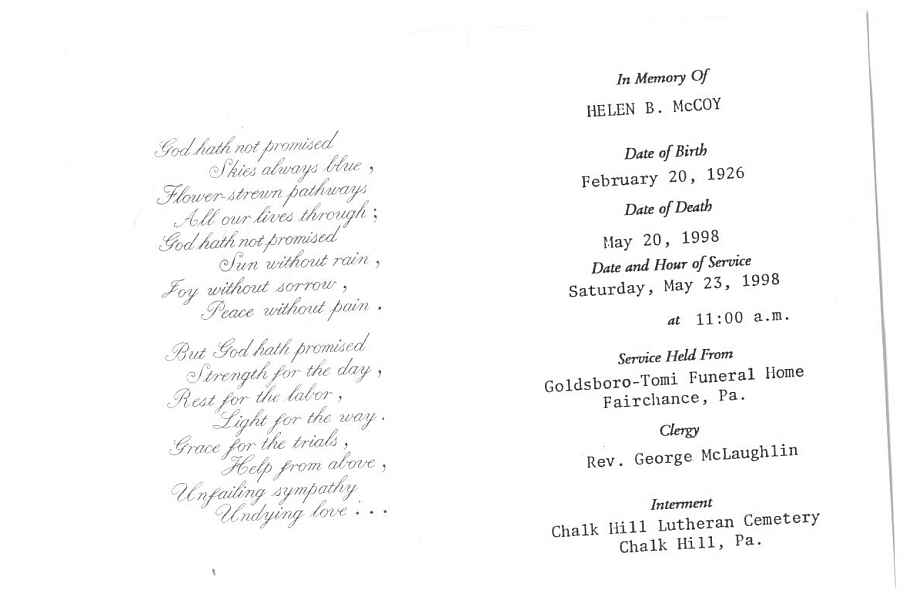 God hath not promised
Skies always blue,
Flower-strewn pathways
All our lives through;
God hath not promised
Sun without rain,
Joy without sorrow,
Peace without pain.
But God hath promised
Strength for the day,
Rest for the labor,
Light for the way.
Grace for the trials,
Help from above,
Unfailing sympathy
Undying love...
In Memory Of
HELEN B. McCOY
Date of Birth
February 20, 1926
Date of Death
May 20, 1998
Date and Hour of Service
Saturday, May 23, 1998
at 11:00 a.m.
Service Held From
Goldsboro-Tomi Funeral Home
Fairchance, Pa.
Clergy
Rev. George McLaughlin
Interment
Chalk Hill Lutheran Cemetery
Chalk Hill, Pa.